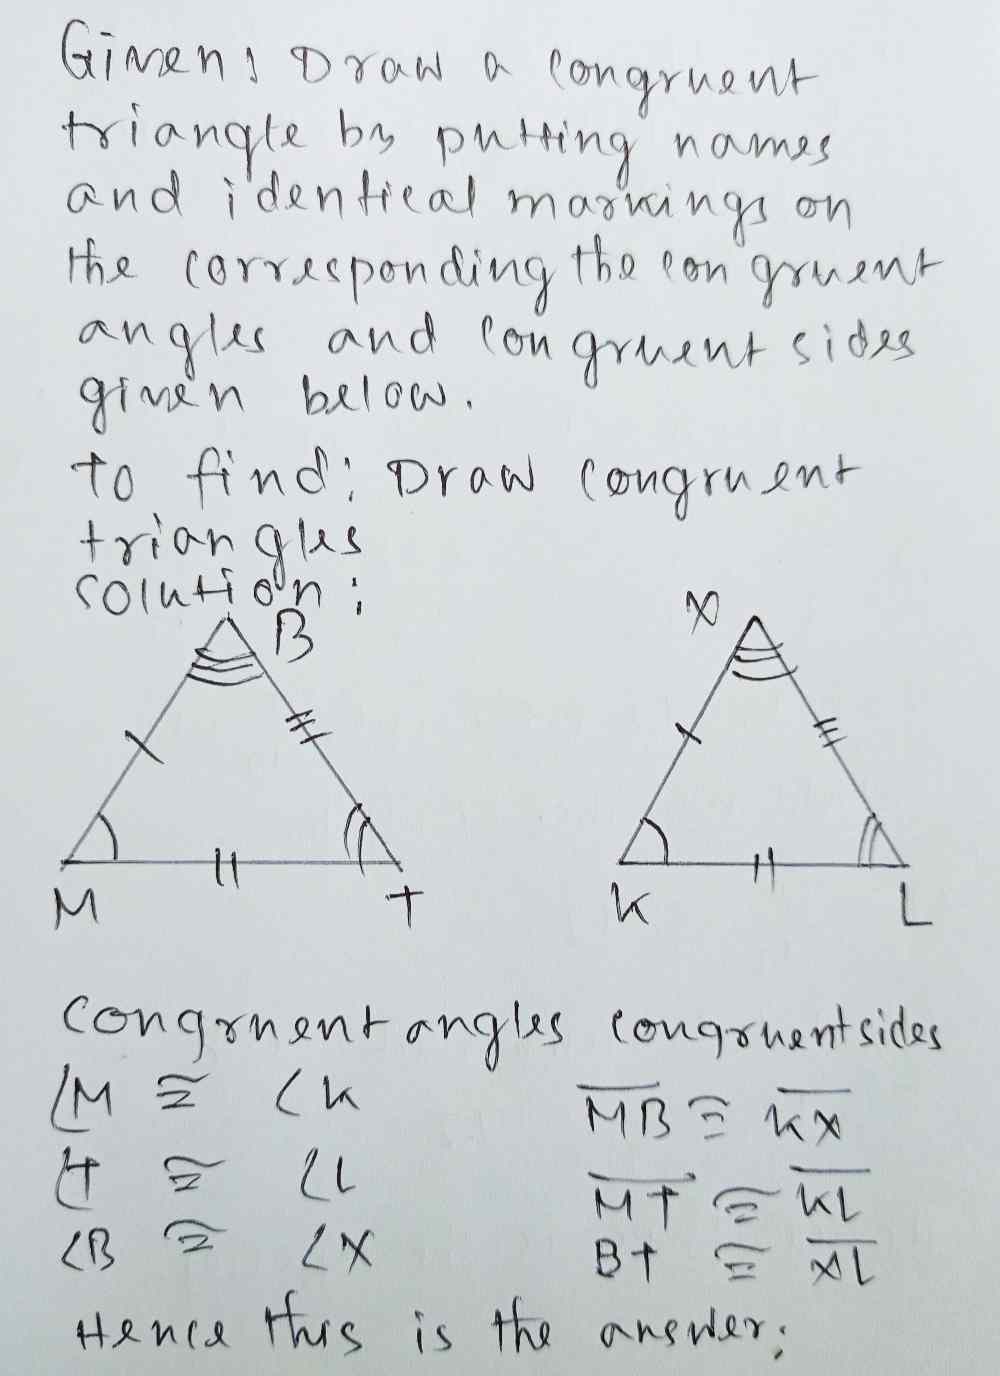 Given: Draw a congruent
triangle by putting names
and identical markings on
the corresponding the congruent
angles and congruent sides
given below.
To find: Draw congruent
triangles
solution:
B
X
M
T
K
L
congruent angles congruent sides
∠M ≅ ∠K
MB ≅ KX
∠T ≅ ∠L
MT ≅ KL
∠B ≅ ∠X
BT ≅ XL
Hence this is the answer;